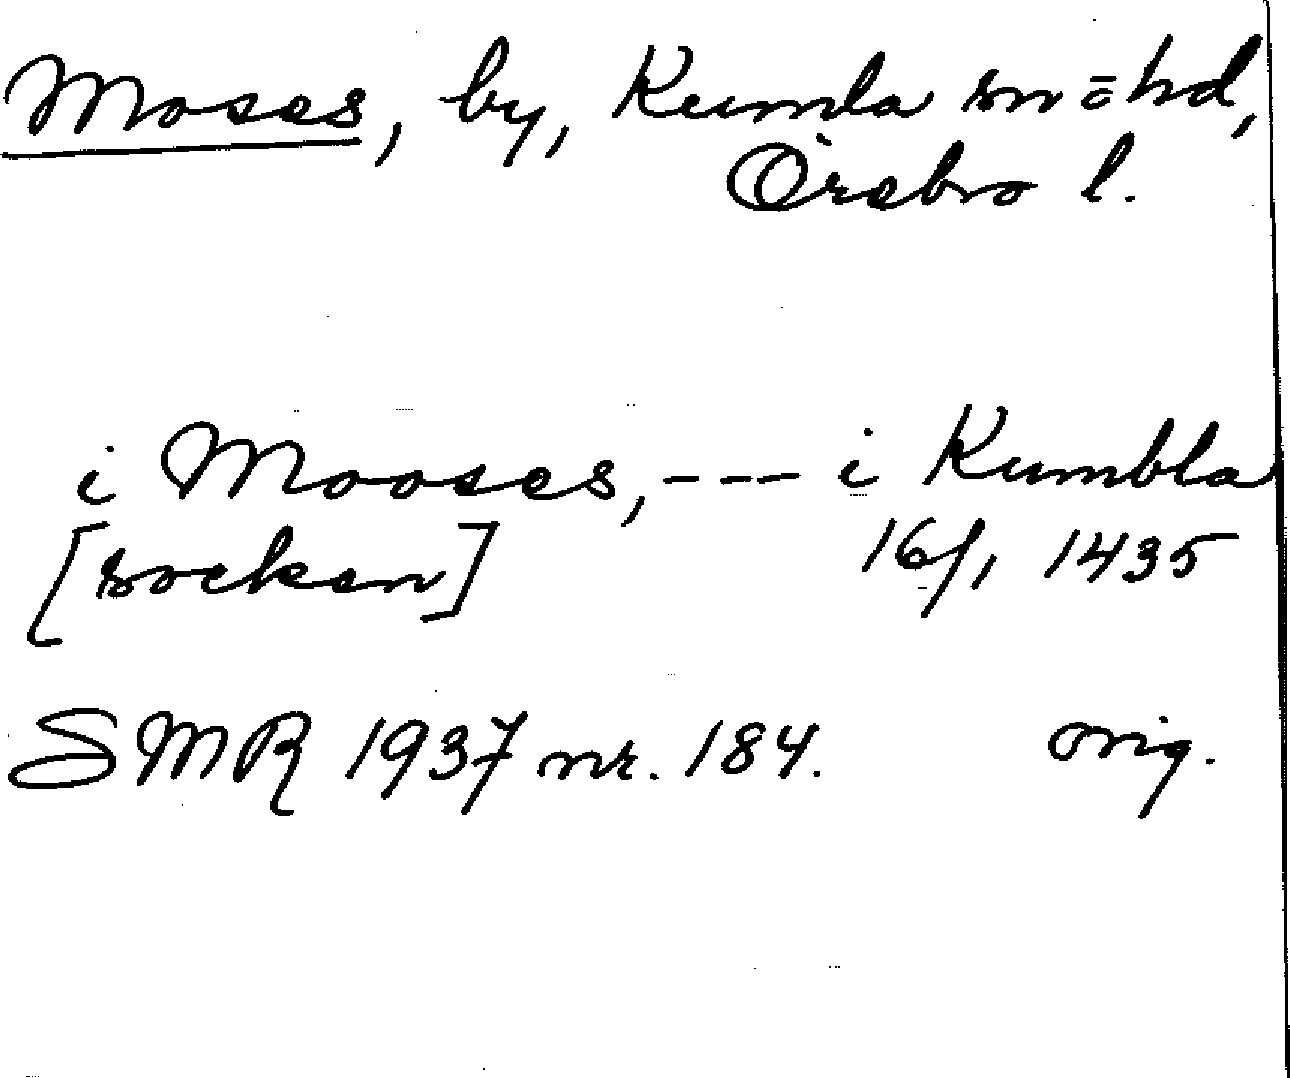 Moses, by, Kumla sn o hd,
Örebro l.
i Mooses, --- i Kumbla
[socken] 16/1 1435
SMR 1937 nr. 184. orig.